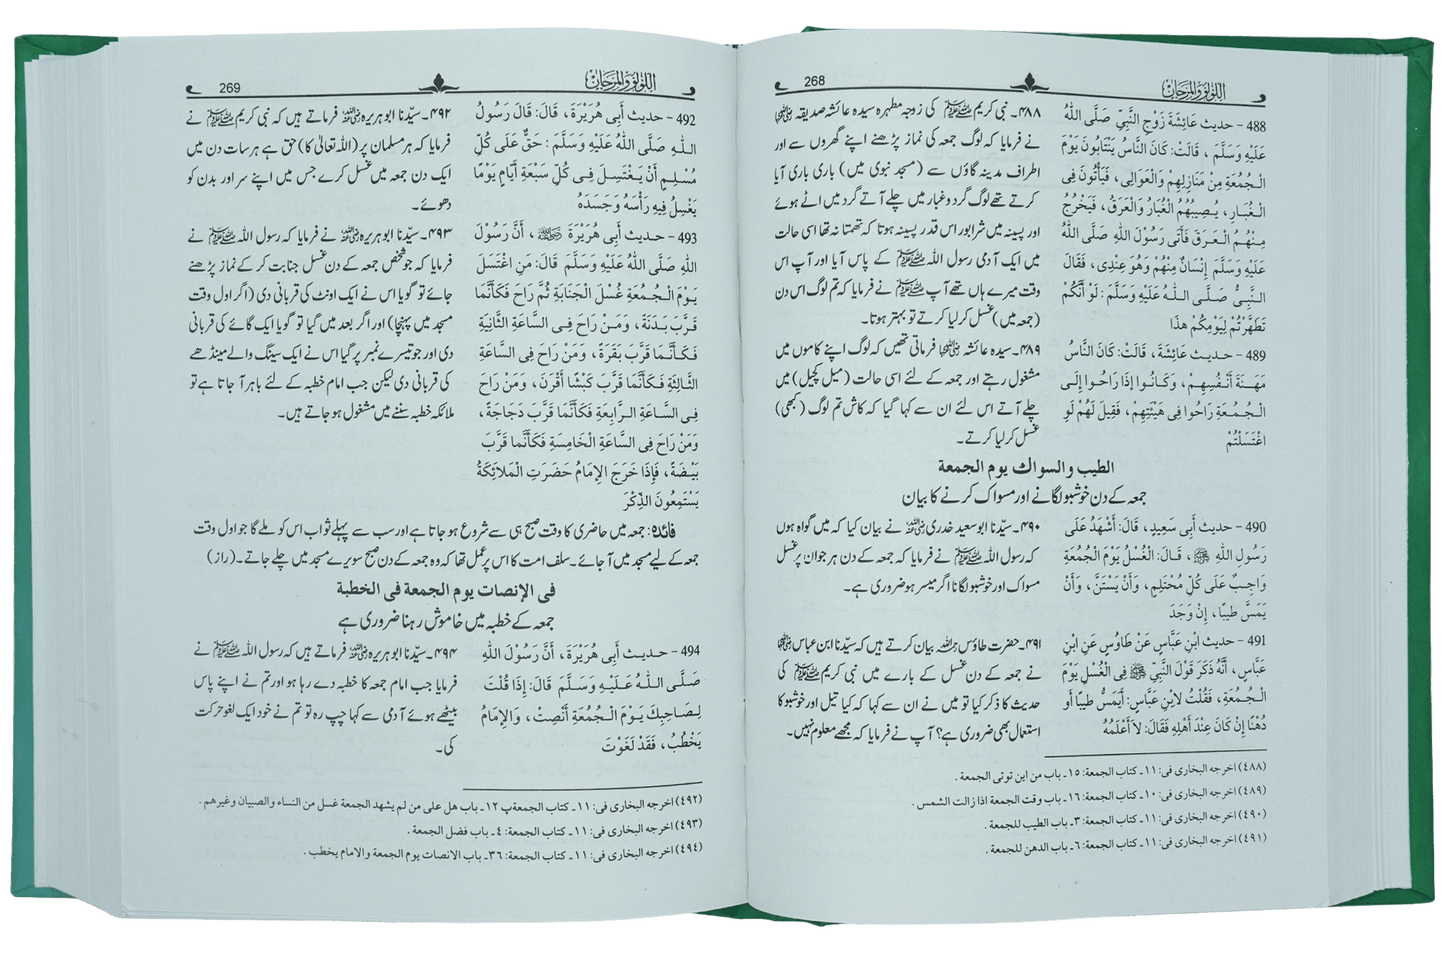 268
اللؤلؤ والمرجان
488 - حدیث عَائِشَةَ زَوْجِ النَّبِيِّ صَلَّى اللّٰهُ
عَلَيْهِ وَسَلَّمَ ، قَالَتْ: كَانَ النَّاسُ يَنْتَابُونَ يَوْمَ
الْجُمُعَةِ مِنْ مَنَازِلِهِمْ وَالْعَوَالِى ، فَيَأْتُونَ فِى
الْغُبَارِ ، يُصِيبُهُمُ الْغُبَارُ وَالْعَرَقُ ، فَيَخْرُجُ
مِنْهُمُ الْعَرَقُ فَأَتَى رَسُولَ اللّٰهِ صَلَّى اللّٰهُ
عَلَيْهِ وَسَلَّمَ إِنْسَانٌ مِنْهُمْ وَهُوَ عِنْدِى ، فَقَالَ
النَّبِىُّ صَلَّى اللّٰهُ عَلَيْهِ وَسَلَّمَ : لَوْ أَنَّكُمْ
تَطَهَّرْتُمْ لِيَوْمِكُمْ هذَا
489 - حدیث عَائِشَةَ ، قَالَتْ: كَانَ النَّاسُ
مَهَنَةَ أَنْفُسِهِمْ ، وَكَانُوا إِذَا رَاحُوا إِلَى
الْجُمُعَةِ رَاحُوا فِى هَيْئَتِهِمْ ، فَقِيلَ لَهُمْ لَوِ
اغْتَسَلْتُمْ
۴۸۸۔ نبی کریم ﷺ کی زوجہ مطہرہ سیدہ عائشہ صدیقہ رضی اللہ عنہا
نے فرمایا کہ لوگ جمعہ کی نماز پڑھنے اپنے گھروں سے اور
اطراف مدینہ گاؤں سے (مسجد نبوی میں) باری باری آیا
کرتے تھے لوگ گرد و غبار میں چلے آتے گرد میں اٹے ہوئے
اور پسینہ میں شرابور اس قدر پسینہ ہوتا کہ تھمتا نہ تھا اسی حالت
میں ایک آدمی رسول اللہ ﷺ کے پاس آیا اور آپ اس
وقت میرے ہاں تھے آپ ﷺ نے فرمایا کہ تم لوگ اس دن
(جمعہ میں) غسل کر لیا کرتے تو بہتر ہوتا۔
۴۸۹۔ سیدہ عائشہ رضی اللہ عنہا فرماتی تھیں کہ لوگ اپنے کاموں میں
مشغول رہتے اور جمعہ کے لئے اسی حالت (میل کچیل) میں
چلے آتے اس لئے ان سے کہا گیا کہ کاش تم لوگ (کبھی)
غسل کر لیا کرتے۔
الطيب والسواك يوم الجمعة
جمعہ کے دن خوشبو لگانے اور مسواک کرنے کا بیان
490 - حدیث أَبِى سَعِيدٍ ، قَالَ: أَشْهَدُ عَلَى
رَسُولِ اللّٰهِ ﷺ ، قَالَ: الْغُسْلُ يَوْمَ الْجُمُعَةِ
وَاجِبٌ عَلَى كُلِّ مُحْتَلِمٍ ، وَأَنْ يَسْتَنَّ ، وَأَنْ
يَمَسَّ طِيبًا ، إِنْ وَجَدَ
491 - حدیث ابْنِ عَبَّاسٍ عَنْ طَاوُسٍ عَنِ ابْنِ
عَبَّاسٍ ، أَنَّهُ ذَكَرَ قَوْلَ النَّبِيِّ ﷺ فِى الْغُسْلِ يَوْمَ
الْجُمُعَةِ ، فَقُلْتُ لِابْنِ عَبَّاسٍ: أَيَمَسُّ طِيبًا أَو
دُهْنًا إِنْ كَانَ عِنْدَ أَهْلِهِ فَقَالَ: لاَ أَعْلَمُهُ
۴۹۰۔ سیّدنا ابو سعید خدری رضی اللہ عنہ نے بیان کیا کہ میں گواہ ہوں
کہ رسول اللہ ﷺ نے فرمایا کہ جمعہ کے دن ہر جوان پر غسل
مسواک اور خوشبو لگانا اگر میسر ہو ضروری ہے۔
۴۹۱۔ حضرت طاؤس رحمہ اللہ بیان کرتے ہیں کہ سیّدنا ابن عباس رضی اللہ عنہما
نے جمعہ کے دن غسل کے بارے میں نبی کریم ﷺ کی
حدیث کا ذکر کیا تو میں نے ان سے کہا کہ کیا تیل اور خوشبو کا
استعمال بھی ضروری ہے؟ آپ نے فرمایا کہ مجھے معلوم نہیں۔
(۴۸۸) اخرجه البخارى فى: ۱۱۔ كتاب الجمعة: ۱۵۔ باب من این توتى الجمعة .
(۴۸۹) اخرجه البخارى فى: ۱۰۔ كتاب الجمعة: ۱۶۔ باب وقت الجمعة اذا زالت الشمس .
(۴۹۰) اخرجه البخارى فى: ۱۱۔ كتاب الجمعة: ۳۔ باب الطيب للجمعة .
(۴۹۱) اخرجه البخارى فى: ۱۱۔ كتاب الجمعة: ۶۔ باب الدهن للجمعة .
269
اللؤلؤ والمرجان
492 - حدیث أَبِى هُرَيْرَةَ ، قَالَ: قَالَ رَسُولُ
اللّٰهِ صَلَّى اللّٰهُ عَلَيْهِ وَسَلَّمَ : حَقٌّ عَلَى كُلِّ
مُسْلِمٍ أَنْ يَغْتَسِلَ فِى كُلِّ سَبْعَةِ أَيَّامٍ يَوْمًا
يَغْسِلُ فِيهِ رَأْسَهُ وَجَسَدَهُ
493 - حدیث أَبِى هُرَيْرَةَ ﷺ ، أَنَّ رَسُولَ
اللّٰهِ صَلَّى اللّٰهُ عَلَيْهِ وَسَلَّمَ قَالَ: مَنِ اغْتَسَلَ
يَوْمَ الْجُمُعَةِ غُسْلَ الْجَنَابَةِ ثُمَّ رَاحَ فَكَأَنَّمَا
قَرَّبَ بَدَنَةً ، وَمَنْ رَاحَ فِى السَّاعَةِ الثَّانِيَةِ
فَكَأَنَّمَا قَرَّبَ بَقَرَةً ، وَمَنْ رَاحَ فِى السَّاعَةِ
الثَّالِثَةِ فَكَأَنَّمَا قَرَّبَ كَبْشًا أَقْرَنَ ، وَمَنْ رَاحَ
فِى السَّاعَةِ الرَّابِعَةِ فَكَأَنَّمَا قَرَّبَ دَجَاجَةً ،
وَمَنْ رَاحَ فِى السَّاعَةِ الْخَامِسَةِ فَكَأَنَّما قَرَّبَ
بَيْضَةً ، فَإِذَا خَرَجَ الإِمَامُ حَضَرَتِ الْمَلاَئِكَةُ
يَسْتَمِعُونَ الذِّكْرَ
۴۹۲۔ سیّدنا ابو ہریرہ رضی اللہ عنہ فرماتے ہیں کہ نبی کریم ﷺ نے
فرمایا کہ ہر مسلمان پر (اللہ تعالیٰ کا) حق ہے ہر سات دن میں
ایک دن جمعہ میں غسل کرے جس میں اپنے سر اور بدن کو
دھوئے۔
۴۹۳۔ سیّدنا ابو ہریرہ رضی اللہ عنہ نے فرمایا کہ رسول اللہ ﷺ نے
فرمایا کہ جو شخص جمعہ کے دن غسل جنابت کر کے نماز پڑھنے
جائے تو گویا اس نے ایک اونٹ کی قربانی دی (اگر اول وقت
مسجد میں پہنچا) اور اگر بعد میں گیا تو گویا ایک گائے کی قربانی
دی اور جو تیسرے نمبر پر گیا اس نے ایک سینگ والے مینڈھے
کی قربانی دی لیکن جب امام خطبہ کے لئے باہر آ جاتا ہے تو
ملائکہ خطبہ سننے میں مشغول ہو جاتے ہیں۔
فائدہ: جمعہ میں حاضری کا وقت صبح ہی سے شروع ہو جاتا ہے اور سب سے پہلے ثواب اس کو ملے گا جو اول وقت
جمعہ کے لیے مسجد میں آ جائے۔ سلف امت کا اس پر عمل تھا کہ وہ جمعہ کے دن صبح سویرے مسجد میں چلے جاتے۔ (راز)
فى الإنصات يوم الجمعة فى الخطبة
جمعہ کے خطبہ میں خاموش رہنا ضروری ہے
494 - حدیث أَبِى هُرَيْرَةَ ، أَنَّ رَسُولَ اللّٰهِ
صَلَّى اللّٰهُ عَلَيْهِ وَسَلَّمَ قَالَ: إِذَا قُلْتَ
لِصَاحِبِكَ يَوْمَ الْجُمُعَةِ أَنْصِتْ ، وَالإِمَامُ
يَخْطُبُ ، فَقَدْ لَغَوْتَ
۴۹۴۔ سیّدنا ابو ہریرہ رضی اللہ عنہ فرماتے ہیں کہ رسول اللہ ﷺ نے
فرمایا جب امام جمعہ کا خطبہ دے رہا ہو اور تم نے اپنے پاس
بیٹھے ہوئے آدمی سے کہا چپ رہ تو تم نے خود ایک لغو حرکت
کی۔
(۴۹۲) اخرجه البخارى فى: ۱۱۔ كتاب الجمعةپ ۱۲۔ باب هل على من لم يشهد الجمعة غسل من النساء والصبيان وغيرهم .
(۴۹۳) اخرجه البخارى فى: ۱۱۔ كتاب الجمعة: ۴۔ باب فضل الجمعة .
(۴۹۴) اخرجه البخارى فى: ۱۱۔ كتاب الجمعة: ۳۶۔ باب الانصات يوم الجمعة والامام يخطب .